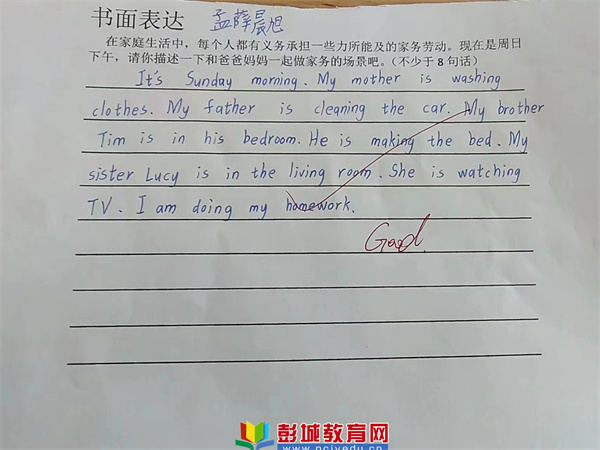 书面表达 孟薛晨旭
在家庭生活中，每个人都有义务承担一些力所能及的家务劳动。现在是周日
下午，请你描述一下和爸爸妈妈一起做家务的场景吧。（不少于8句话）
It's Sunday morning. My mother is washing
clothes. My father is cleaning the car. My brother
Tim is in his bedroom. He is making the bed. My
sister Lucy is in the living room. She is watching
TV. I am doing my homework.
Good
彭城教育网
www.pcjyedu.cn